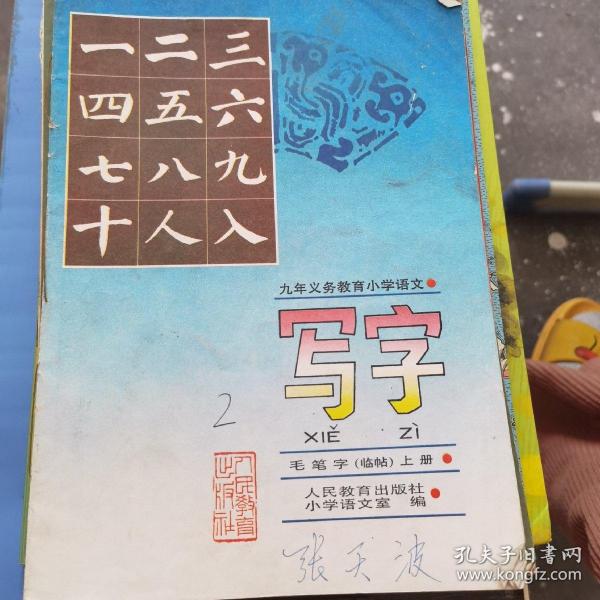 一二三
四五六
七八九
十人入
九年义务教育小学语文
写字
XIĚ ZÌ
毛笔字(临帖)上册
人民教育出版社
小学语文室 编
2
人民教育
出版社
张天波
孔夫子旧书网
www.kongfz.com